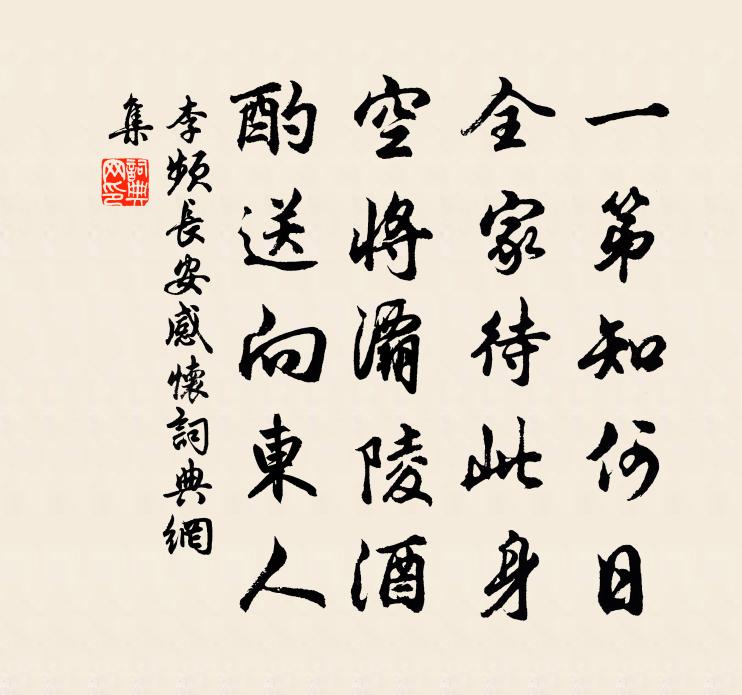 一第知何日
全家待此身
空將灞陵酒
酌送向東人
李頻長安感懷詞典網
集
詞典
网印